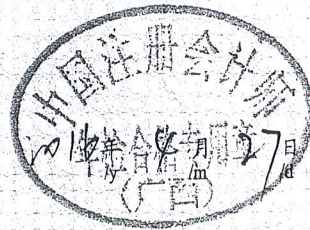 中国注册会计师
2016年 4月 27日
/y /m /d
年检合格专用章
(广西)